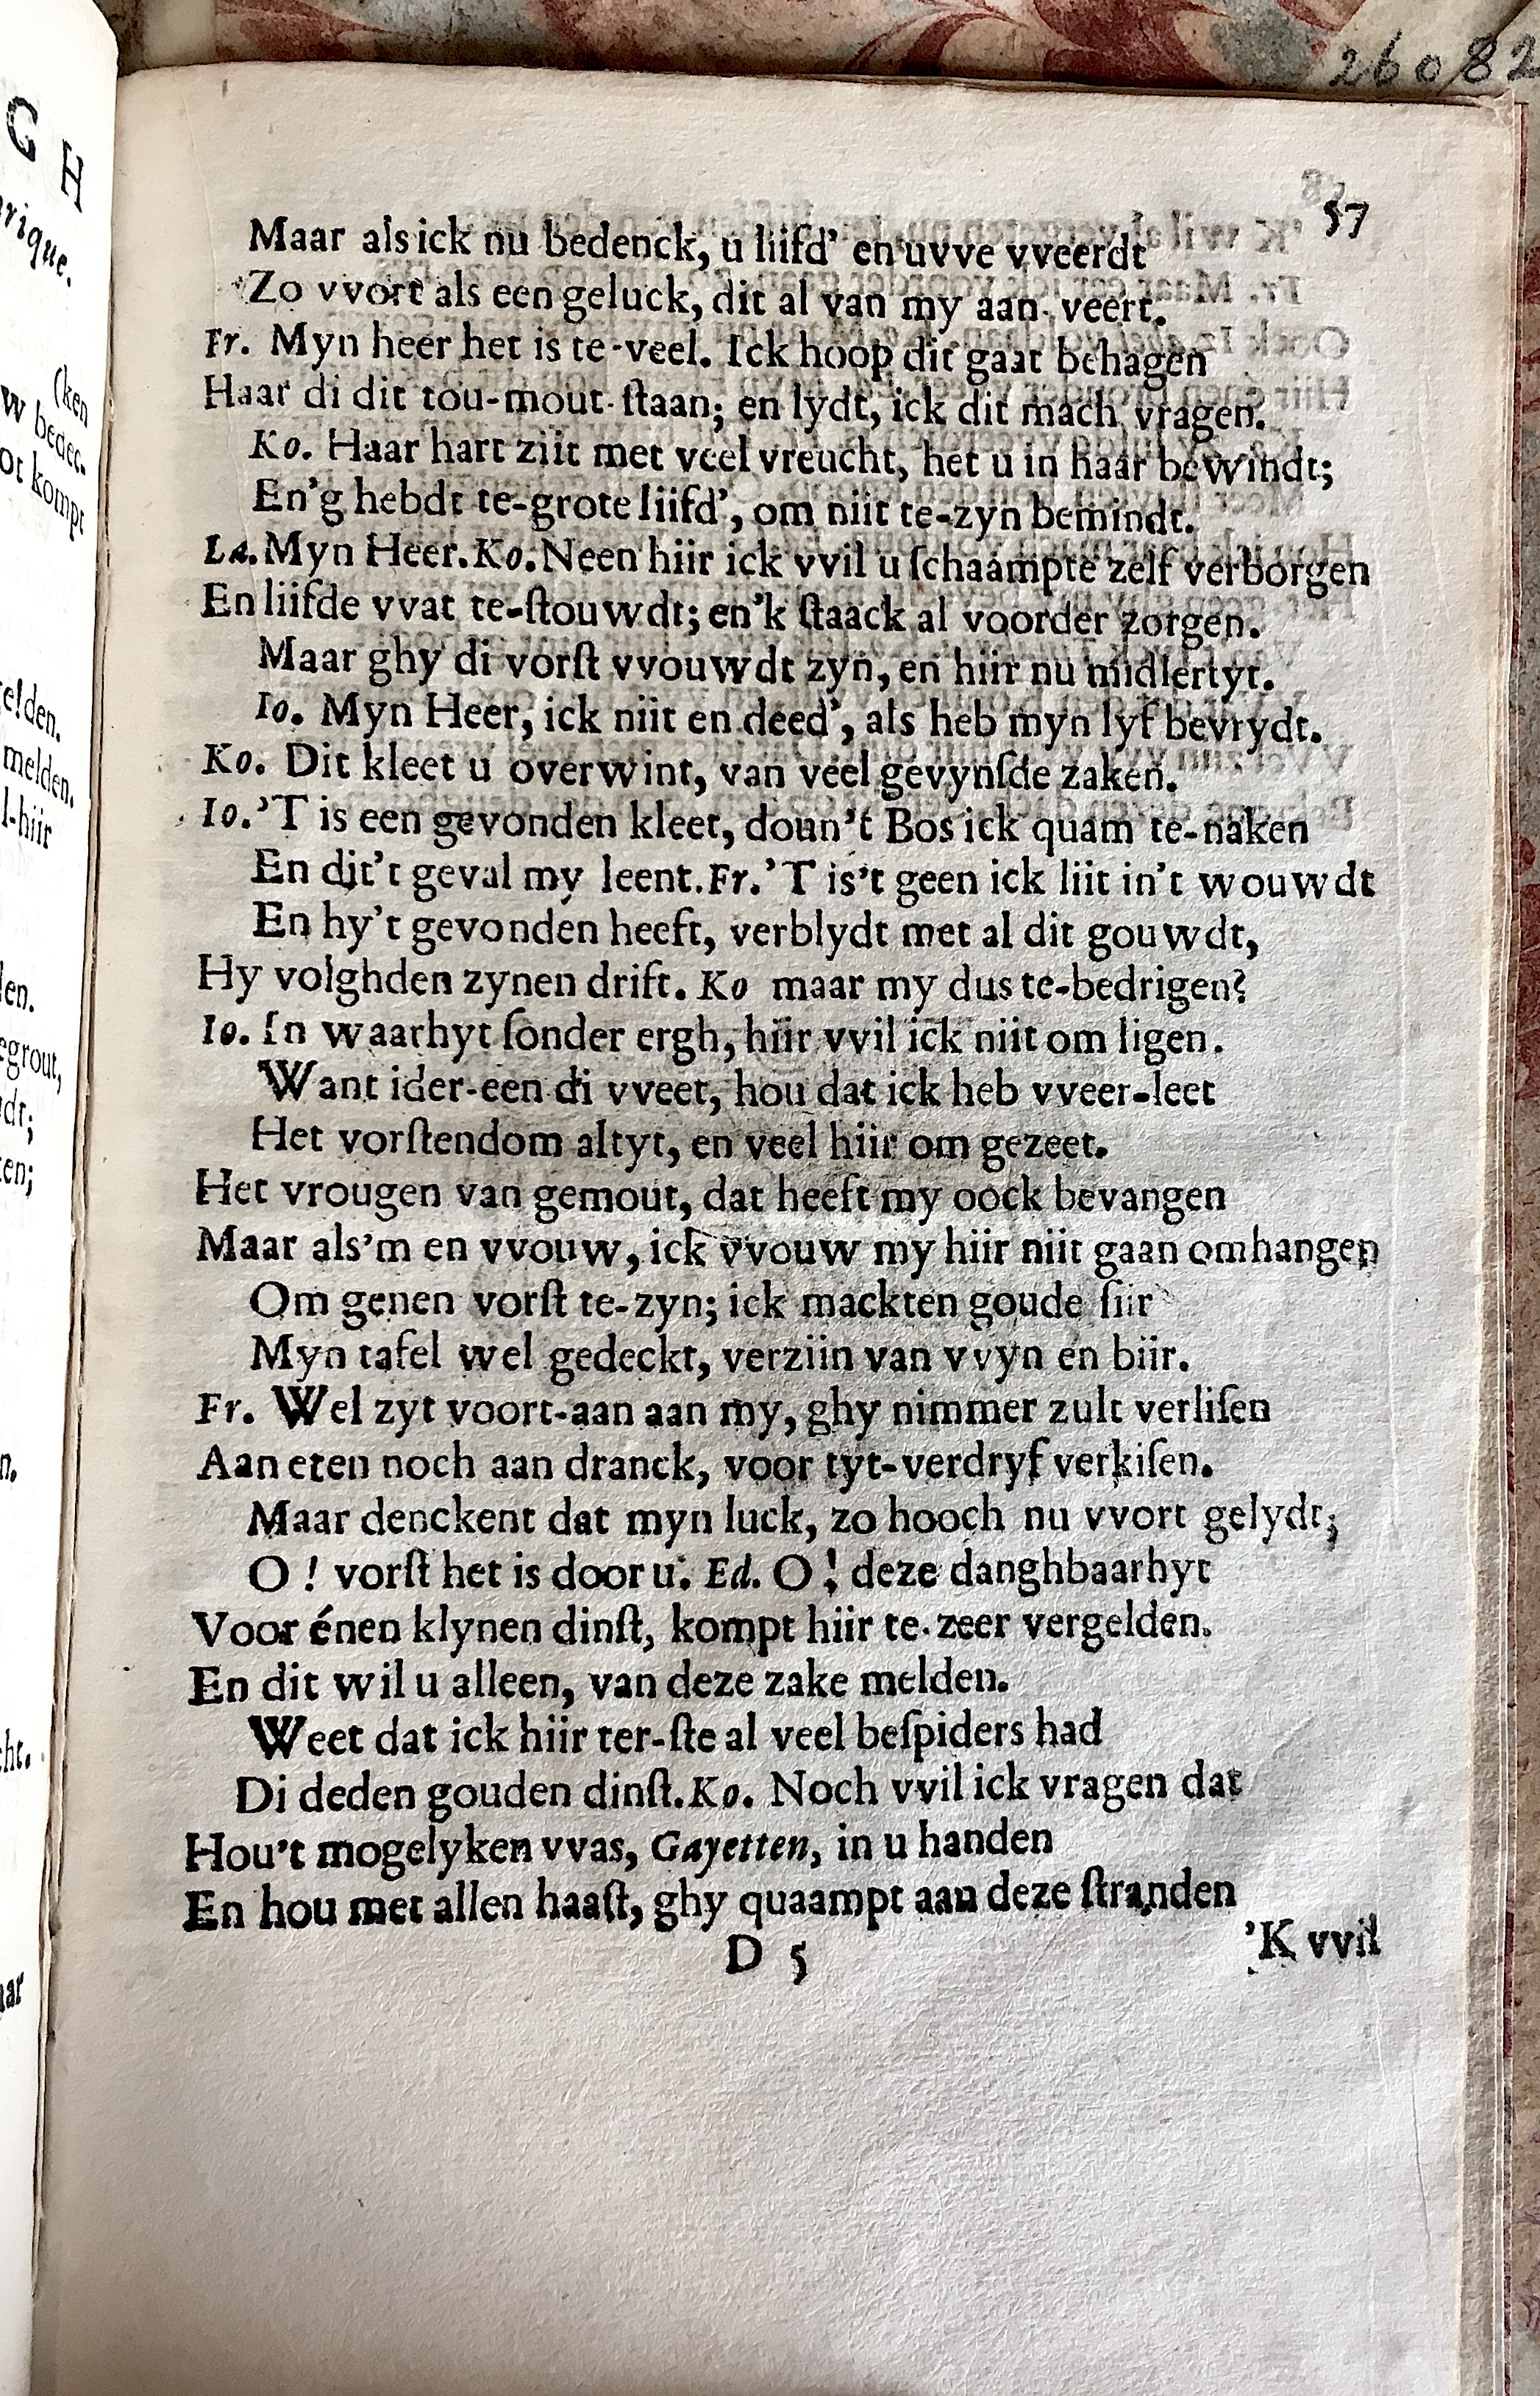 26082
57
Maar als ick nu bedenck, u liifd' en uvve vveerdt
Zo vvort als een geluck, dit al van my aan-veert.
Fr. Myn heer het is te-veel. Ick hoop dit gaat behagen
Haar di dit tou-mout-ſtaan; en lydt, ick dit mach vragen.
Ko. Haar hart ziit met veel vreucht, het u in haar bewindt;
En'g hebdt te-grote liifd', om niit te-zyn bemindt.
La. Myn Heer. Ko. Neen hiir ick vvil u ſchaampte zelf verborgen
En liifde vvat te-ſtouwdt; en'k ſtaack al voorder zorgen.
Maar ghy di vorſt vvouwdt zyn, en hiir nu midlertyt.
Io. Myn Heer, ick niit en deed', als heb myn lyf bevrydt.
Ko. Dit kleet u overwint, van veel gevynſde zaken.
Io. 'T is een gevonden kleet, doun't Bos ick quam te-naken
En dit't geval my leent. Fr. 'T is't geen ick liit in't wouwdt
En hy't gevonden heeft, verblydt met al dit gouwdt,
Hy volghden zynen drift. Ko maar my dus te-bedrigen?
Io. In waarhyt ſonder ergh, hiir vvil ick niit om ligen.
Want ider-een di vveet, hou dat ick heb vveer-leet
Het vorſtendom altyt, en veel hiir om gezeet.
Het vrougen van gemout, dat heeft my oock bevangen
Maar als'm en vvouw, ick vvouw my hiir niit gaan omhangen
Om genen vorſt te-zyn; ick mackten goude ſiir
Myn tafel wel gedeckt, verziin van vvyn en biir.
Fr. Wel zyt voort-aan aan my, ghy nimmer zult verliſen
Aan eten noch aan dranck, voor tyt-verdryf verkiſen.
Maar denckent dat myn luck, zo hooch nu vvort gelydt;
O! vorſt het is door u. Ed. O! deze danghbaarhyt
Voor énen klynen dinſt, kompt hiir te-zeer vergelden.
En dit wil u alleen, van deze zake melden.
Weet dat ick hiir ter-ſte al veel beſpiders had
Di deden gouden dinſt. Ko. Noch vvil ick vragen dat
Hou't mogelyken vvas, Gayetten, in u handen
En hou met allen haaſt, ghy quaampt aan deze ſtranden
D 5
'K vvil